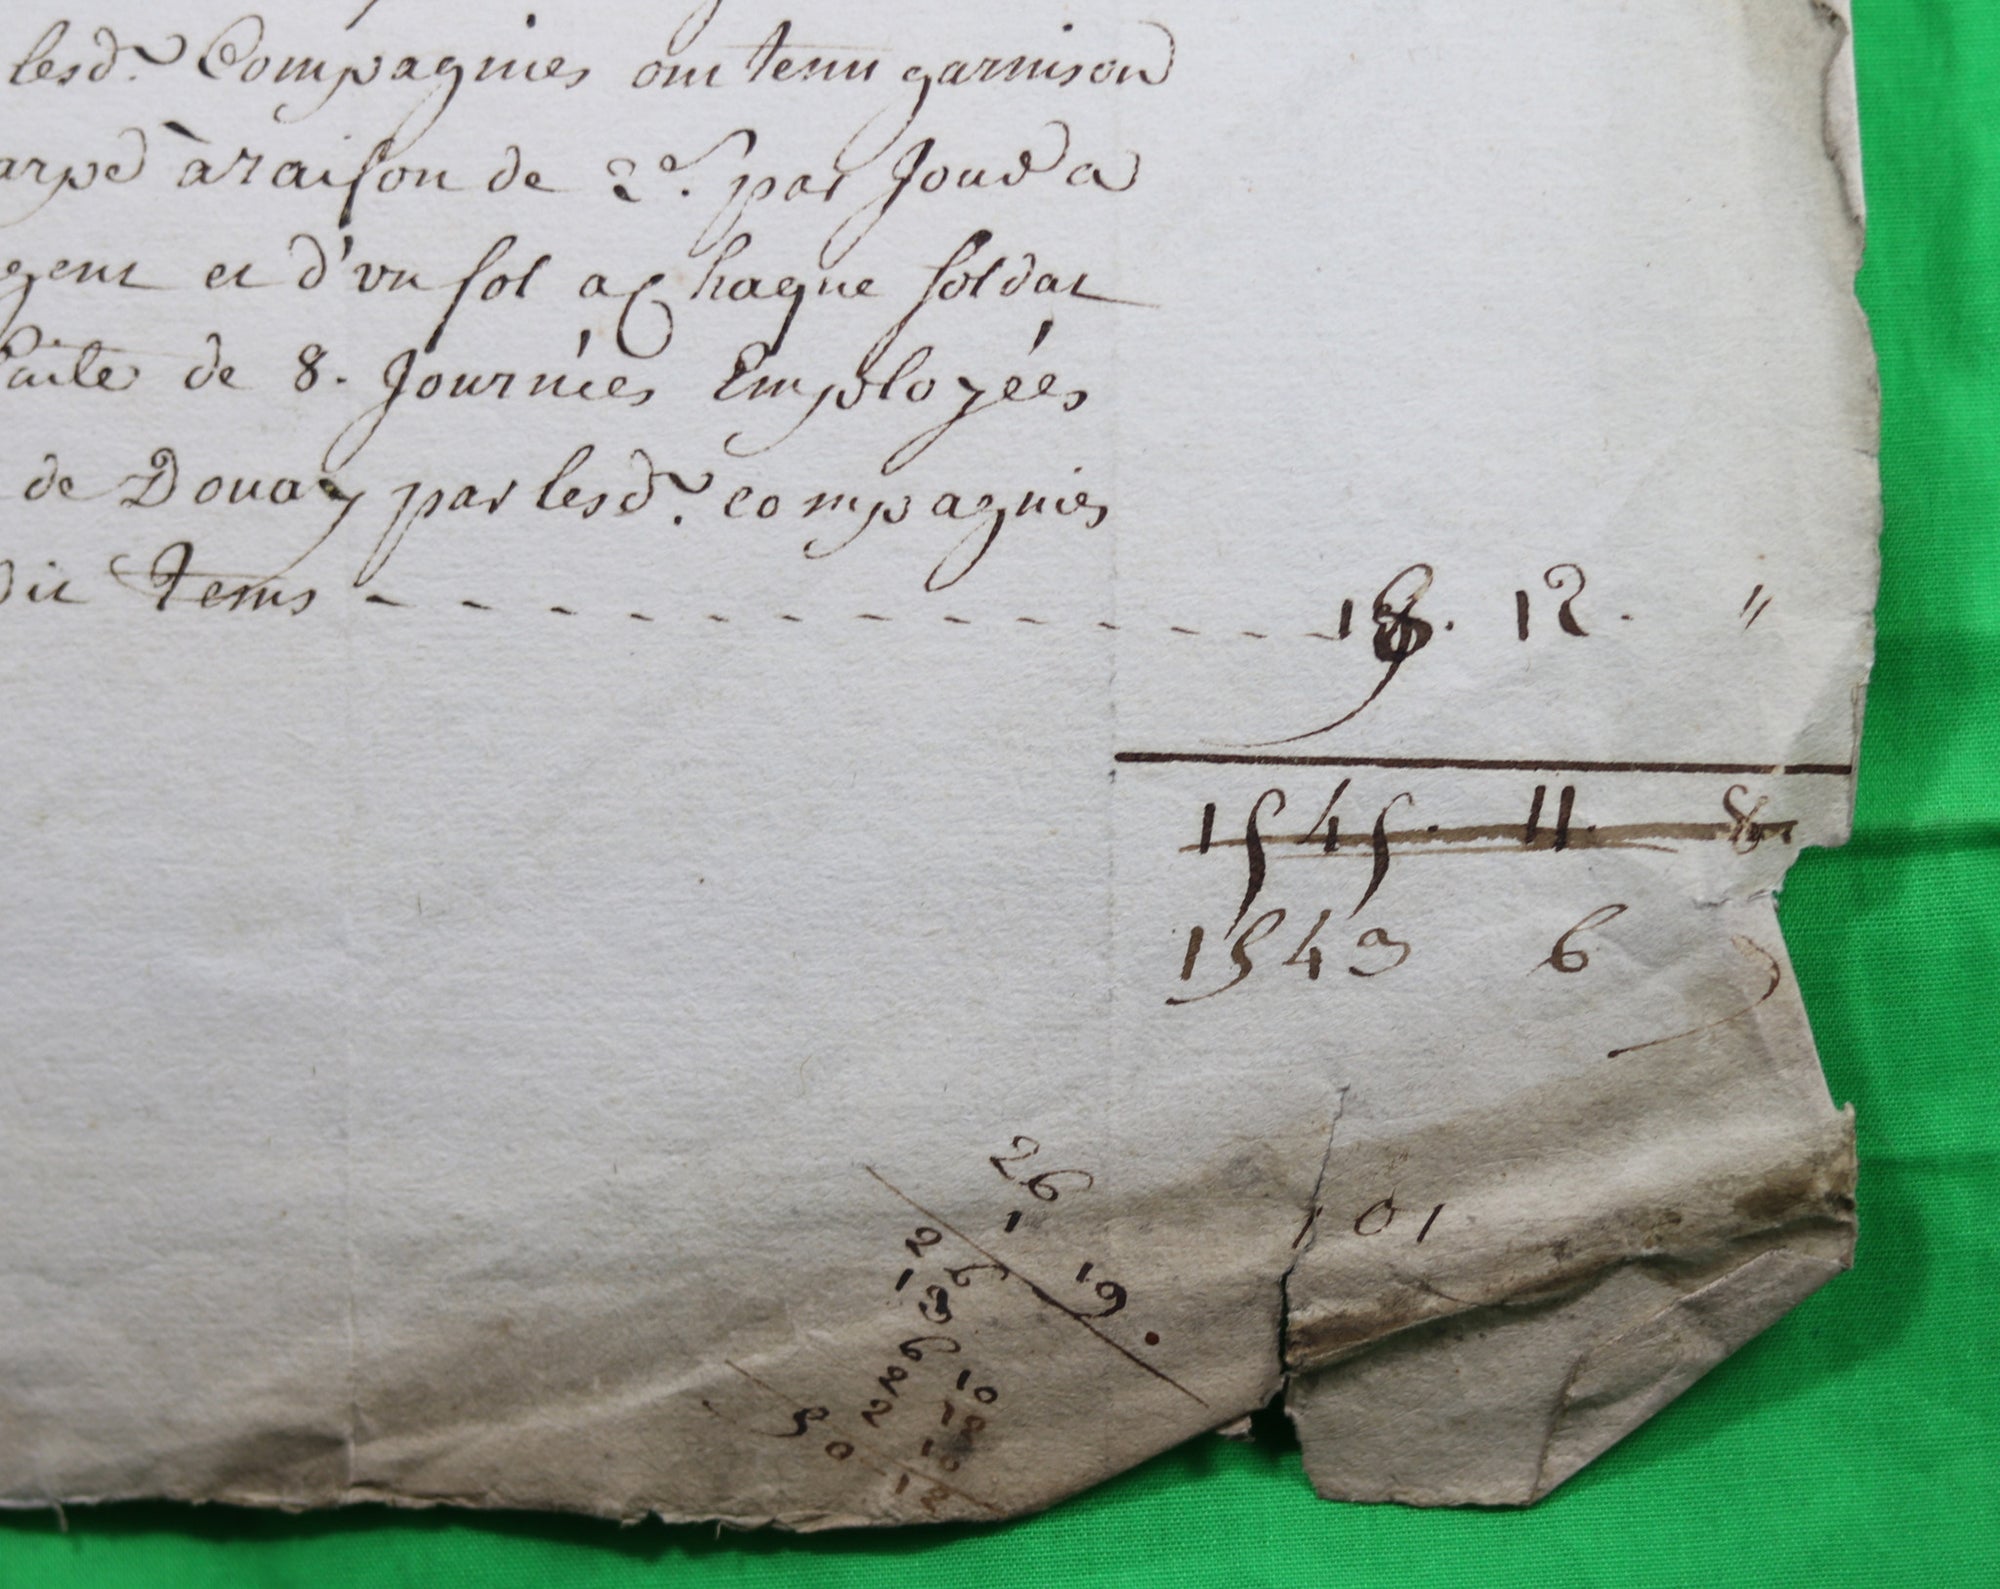 lesd.ˢ Compagnies ont tenu garnison
arpe à raison de 2ˢ. par Jour a
gent et d'un sol a Chaque soldat
faite de 8. Journées Employées
de Douay par lesd.ˢ compagnies
dit tems - - - - - - - - - - - 18. 12. "
1545. 11. 8.
1543 6
26
1
19.
101